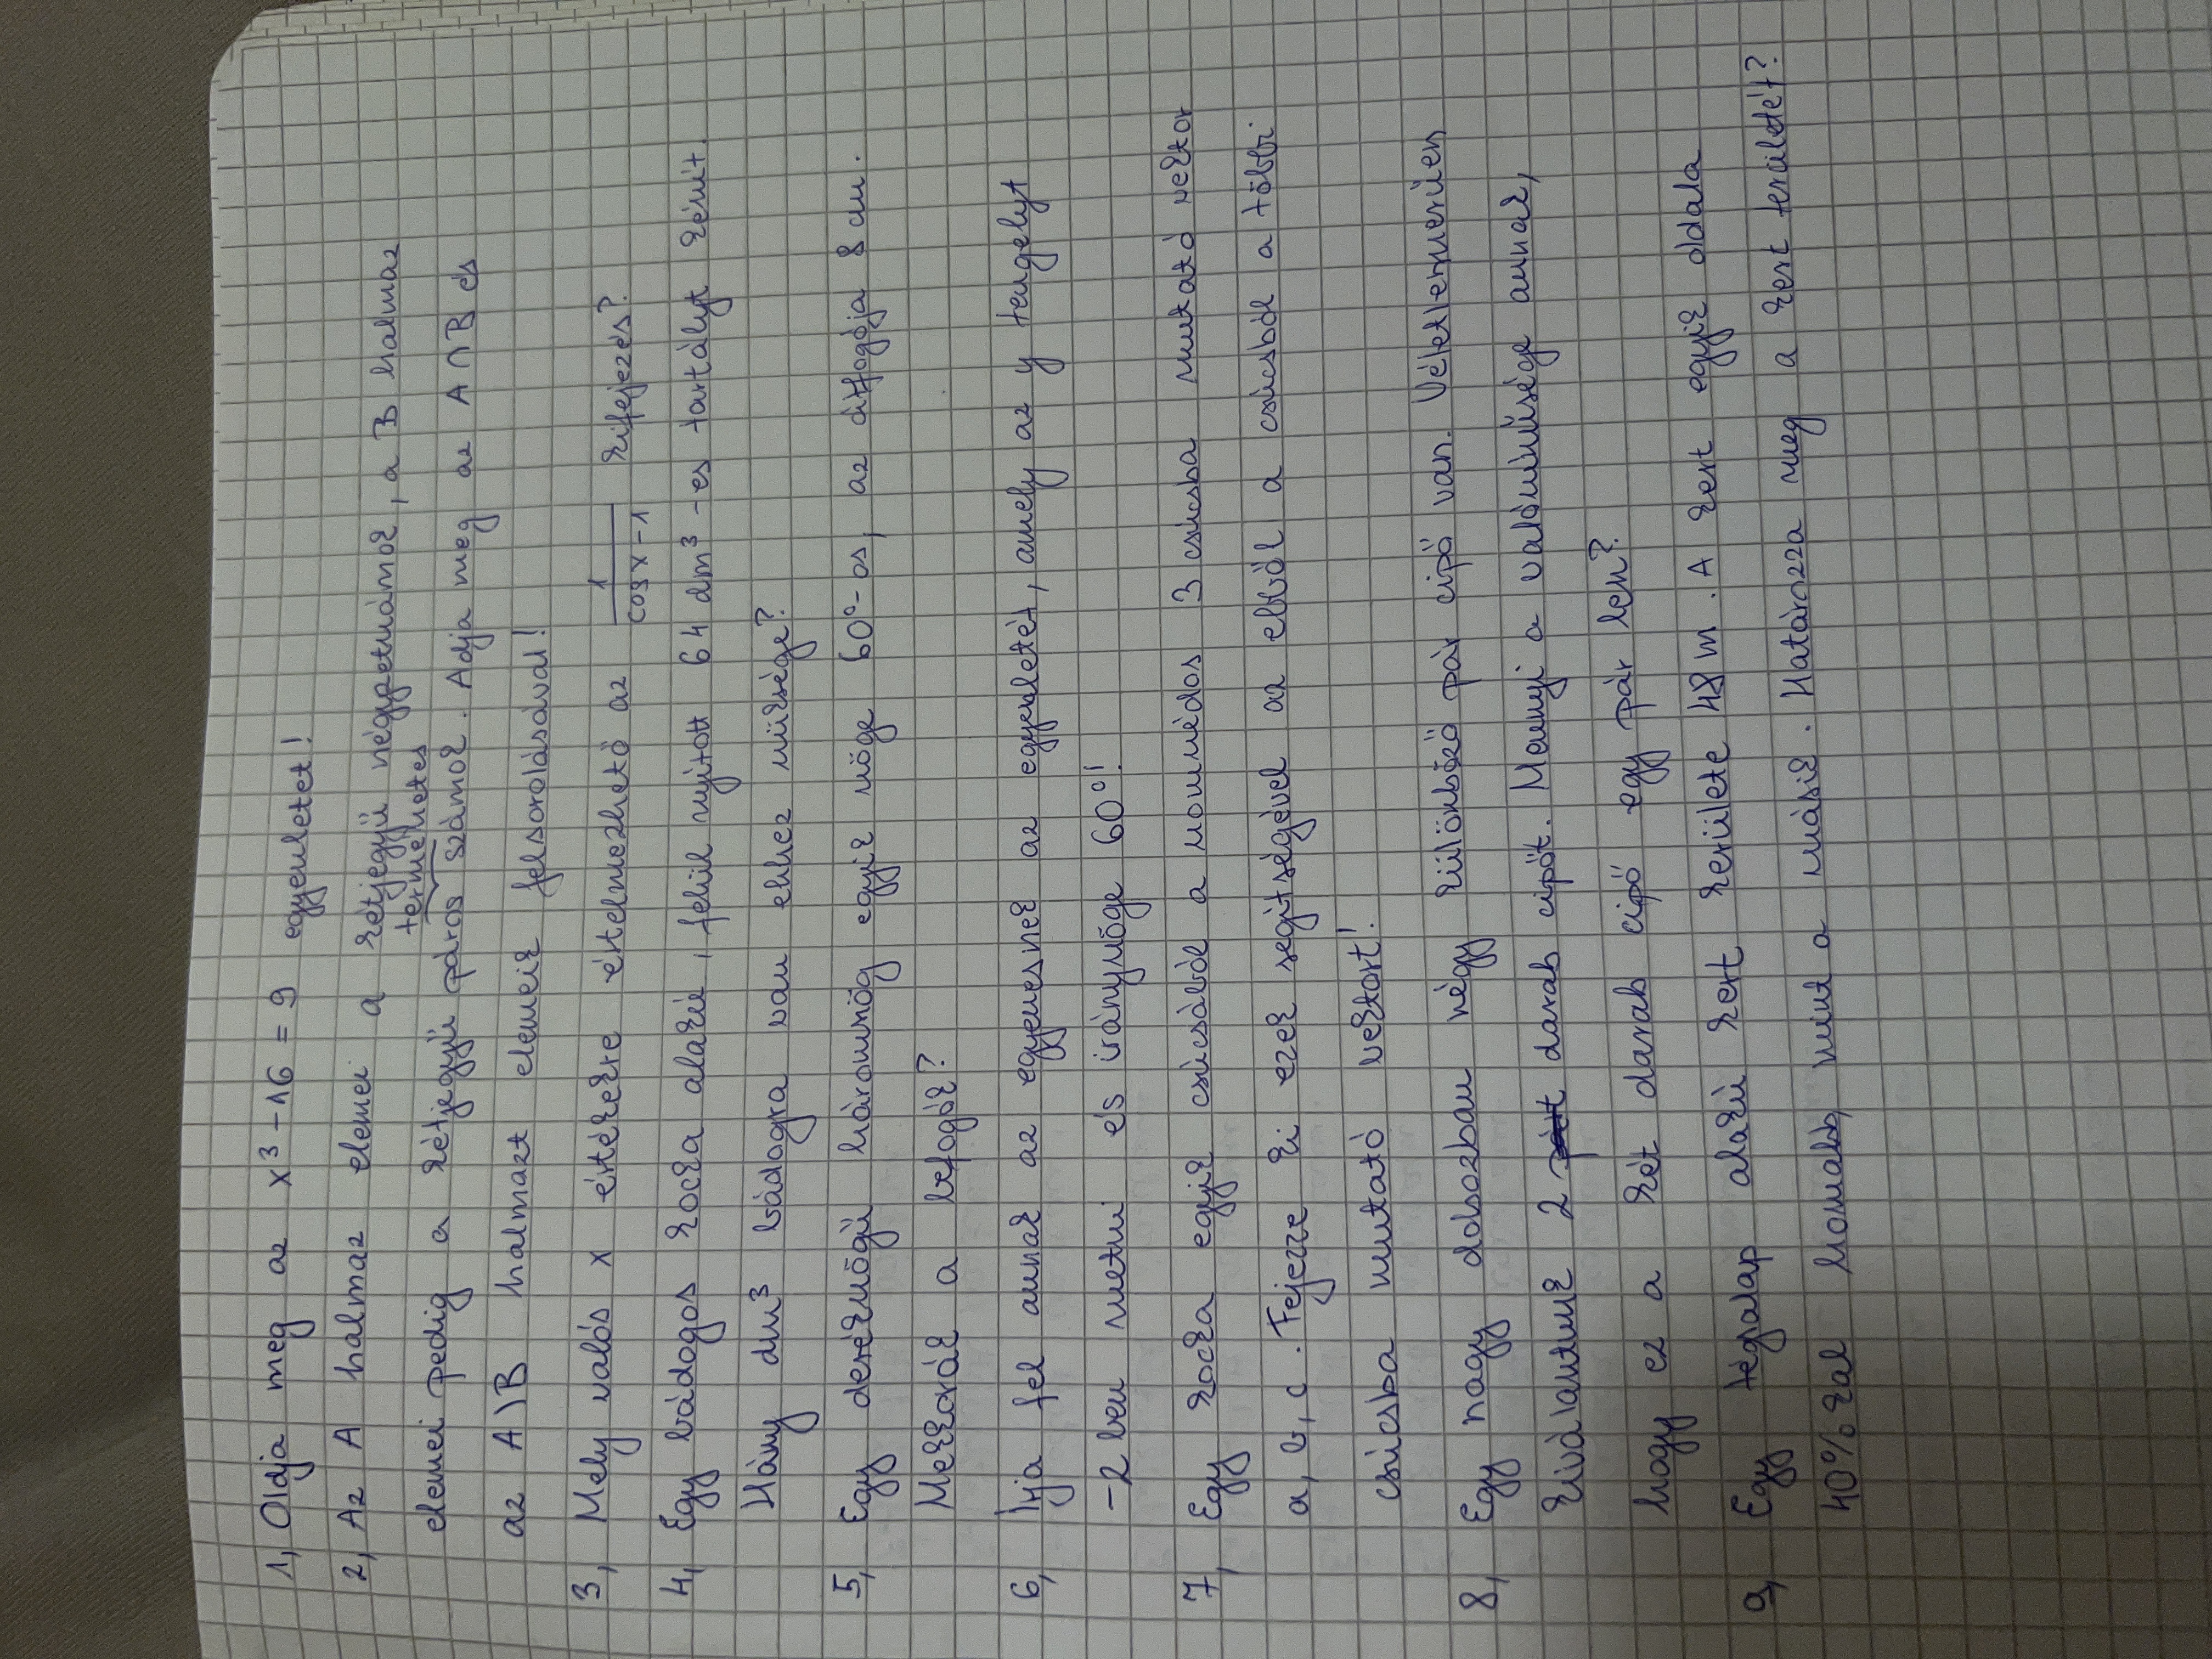 1, Oldja meg az x³ - 16 = 9 egyenletet!
2, Az A halmaz elemei a kétjegyű négyzetszámok, a B halmaz
természetes
elemei pedig a kétjegyű páros számok. Adja meg az A∩B és
az A\B halmazt elemeik felsorolásával!
3, Mely valós x értékekre értelmezhető az 1/(cosx-1) kifejezés?
4, Egy bádogos kocka alakú, felül nyitott 64 dm³-es tartályt készít.
Hány dm³ bádogra van ehhez szüksége?
5, Egy derékszögű háromszög egyik szöge 60°-os, az átfogója 8 cm.
Mekkorák a befogók?
6, Írja fel annak az egyenesnek az egyenletét, amely az y tengelyt
-2 ben metszi és irányszöge 60°!
7, Egy kocka egyik csúcsából a szomszédos 3 csúcsba mutató vektor
a, b, c. Fejezze ki ezek segítségével az ebből a csúcsból a többi
csúcsba mutató vektort!
8, Egy nagy dobozban négy különböző pár cipő van. Véletlenszerűen
kiválasztunk 2 darab cipőt. Mennyi a valószínűsége annak,
hogy ez a két darab cipő egy pár lesz?
9, Egy téglalap alakú kert kerülete 48 m. A kert egyik oldala
40%kal hosszabb, mint a másik. Határozza meg a kert területét?